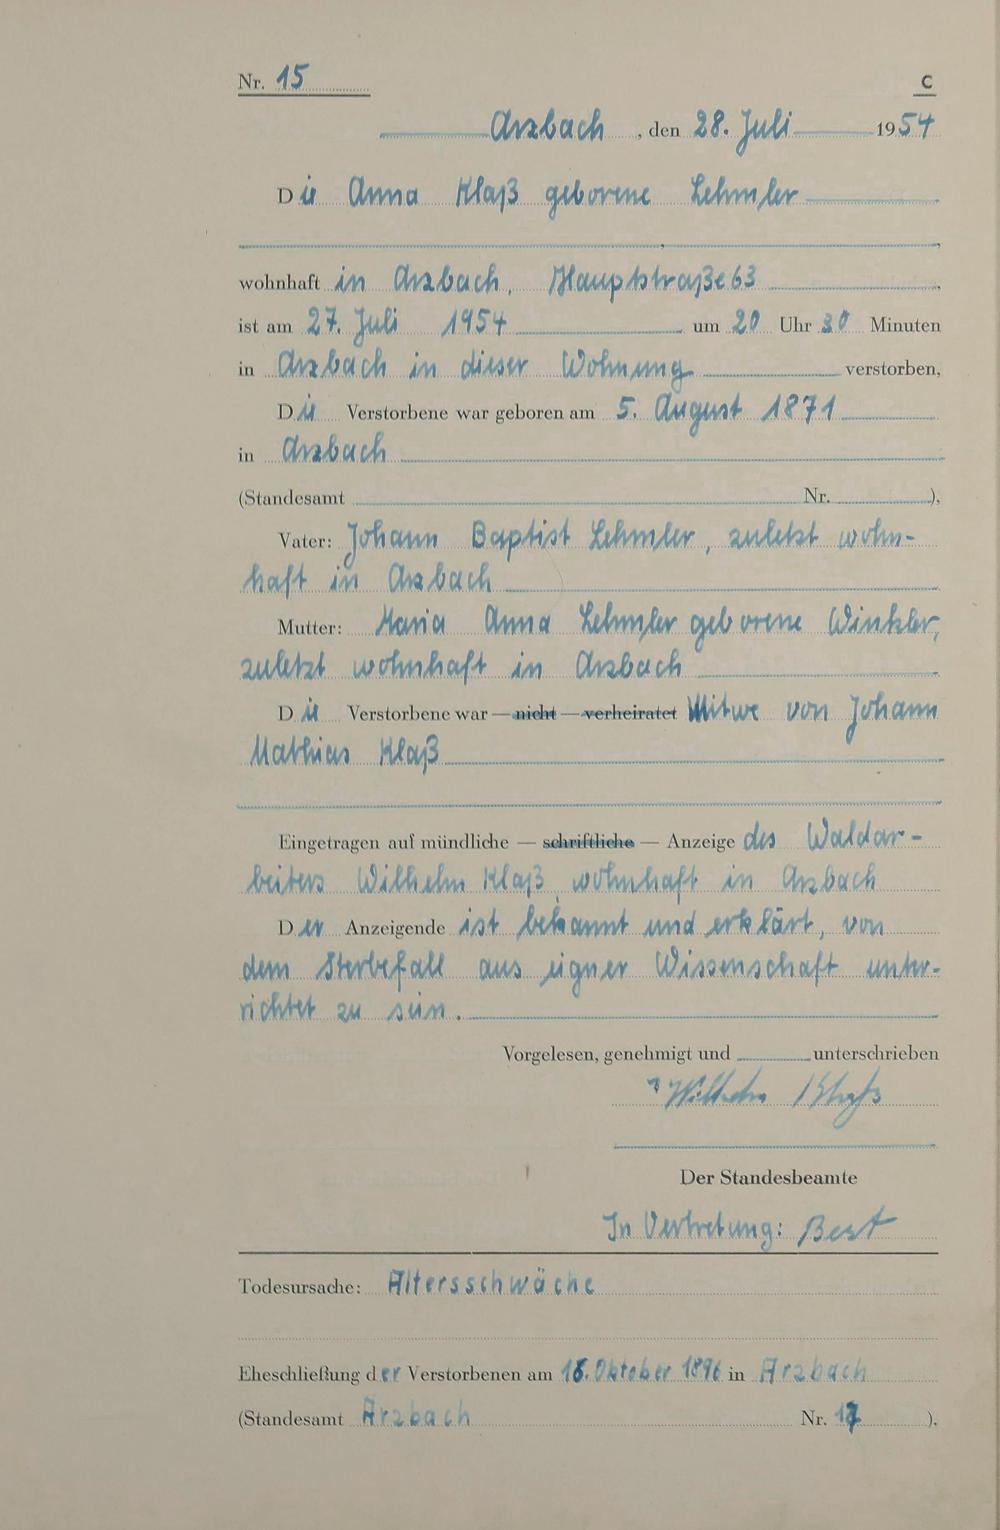 Nr. 15
C
Arzbach, den 28. Juli 1954
Die Anna Klaß geborene Lehmler
wohnhaft in Arzbach, Hauptstraße 63,
ist am 27. Juli 1954 um 20 Uhr 30 Minuten
in Arzbach in dieser Wohnung verstorben,
Die Verstorbene war geboren am 5. August 1871
in Arzbach
(Standesamt Nr. ),
Vater: Johann Baptist Lehmler, zuletzt wohn-
haft in Arzbach
Mutter: Maria Anna Lehmler geborene Winkler,
zuletzt wohnhaft in Arzbach
Die Verstorbene war — nicht — verheiratet Witwe von Johann
Mathias Klaß
Eingetragen auf mündliche — schriftliche — Anzeige des Waldar-
beiters Wilhelm Klaß, wohnhaft in Arzbach
Der Anzeigende ist bekannt und erklärt, von
dem Sterbefall aus eigner Wissenschaft unter-
richtet zu sein.
Vorgelesen, genehmigt und unterschrieben
Wilhelm Klaß
Der Standesbeamte
In Vertretung: Best
Todesursache: Altersschwäche
Eheschließung der Verstorbenen am Oktober 1896 in Arzbach
(Standesamt Arzbach Nr. 17 ).